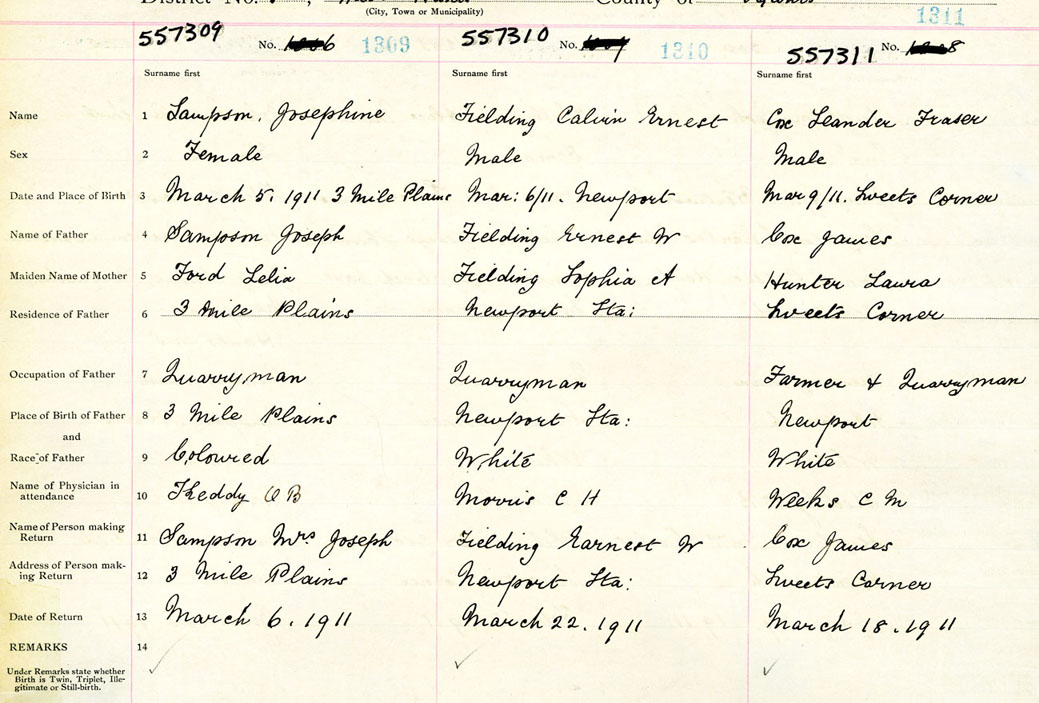 (City, Town or Municipality)
County of
1311
557309 No. 6 1309 557310 No. 1310 557311 No. 8
Surname first Surname first Surname first
Name 1 Sampson, Josephine Fielding Calvin Ernest Cox Leander Fraser
Sex 2 Female Male Male
Date and Place of Birth 3 March 5, 1911 3 Mile Plains Mar: 6/11. Newport Mar 9/11. Sweets Corner
Name of Father 4 Sampson Joseph Fielding Ernest W Cox James
Maiden Name of Mother 5 Ford Lelia Fielding Sophia A Hunter Laura
Residence of Father 6 3 Mile Plains Newport Sta: Sweets Corner
Occupation of Father 7 Quarryman Quarryman Farmer & Quarryman
Place of Birth of Father 8 3 Mile Plains Newport Sta: Newport
and
Race of Father 9 Coloured White White
Name of Physician in
attendance 10 Keddy O B Morris C H Weeks C M
Name of Person making
Return 11 Sampson Mrs Joseph Fielding Earnest W Cox James
Address of Person mak-
ing Return 12 3 Mile Plains Newport Sta: Sweets Corner
Date of Return 13 March 6, 1911 March 22, 1911 March 18, 1911
REMARKS 14
Under Remarks state whether
Birth is Twin, Triplet, Ille-
gitimate or Still-birth.